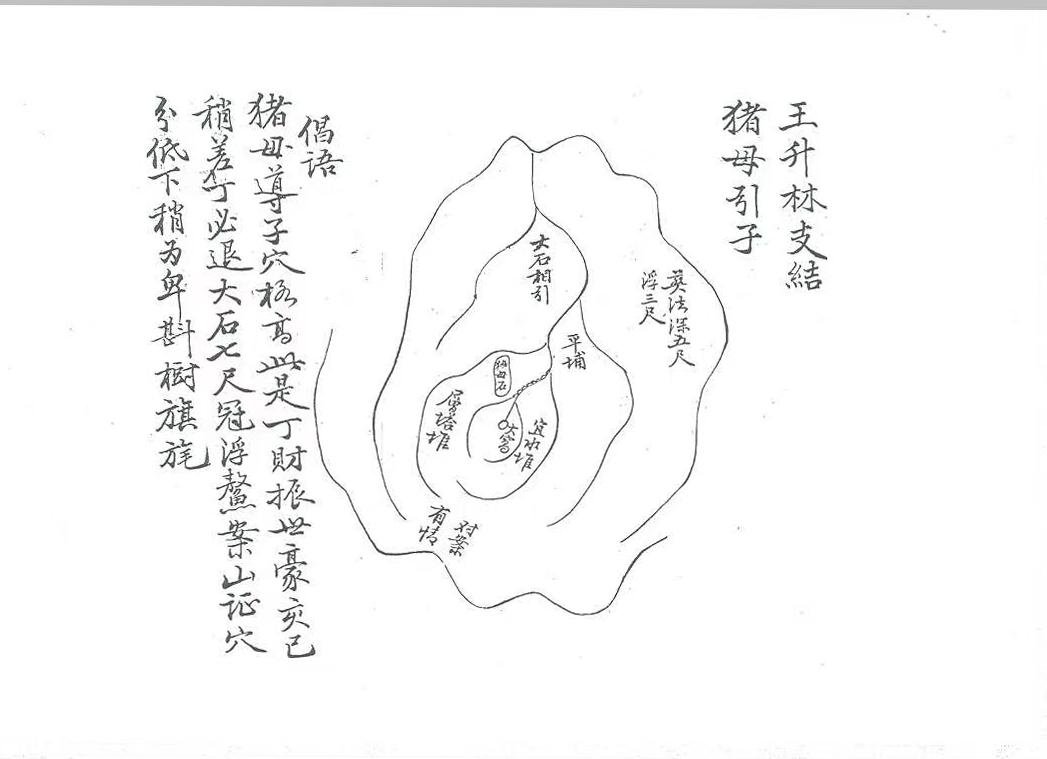 王升林支結
猪母引子
葬法深五尺
浮三尺
大石相引
平埔
猪母石
大谷
宜水堆
層塔堆
对案
有情
倡語
猪母導子穴格高此是丁財振世豪亥巳
稍差丁必退大石七尺冠浮鰲案山证穴
分低下稍为卑斟樹旗旄